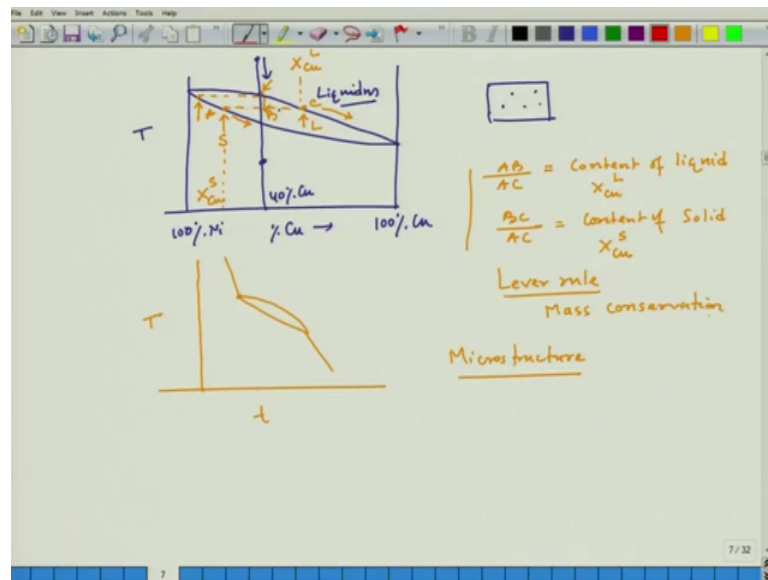 File Edit View Insert Actions Tools Help
X Cu L
Liquidus
T
A
B
C
S
L
X Cu S
40%.Cu
100%.Ni
%.Cu →
100%.Cu
AB/AC = Content of liquid
X Cu L
BC/AC = Content of Solid
X Cu S
Lever rule
Mass conservation
T
t
Microstructure
7/32
7